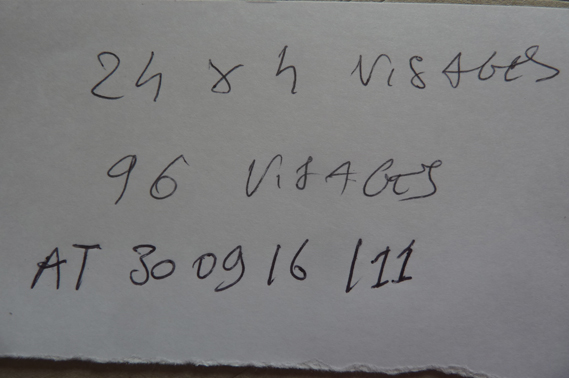 24 x 4 VISAGES
96 VISAGES
AT 300916 /11